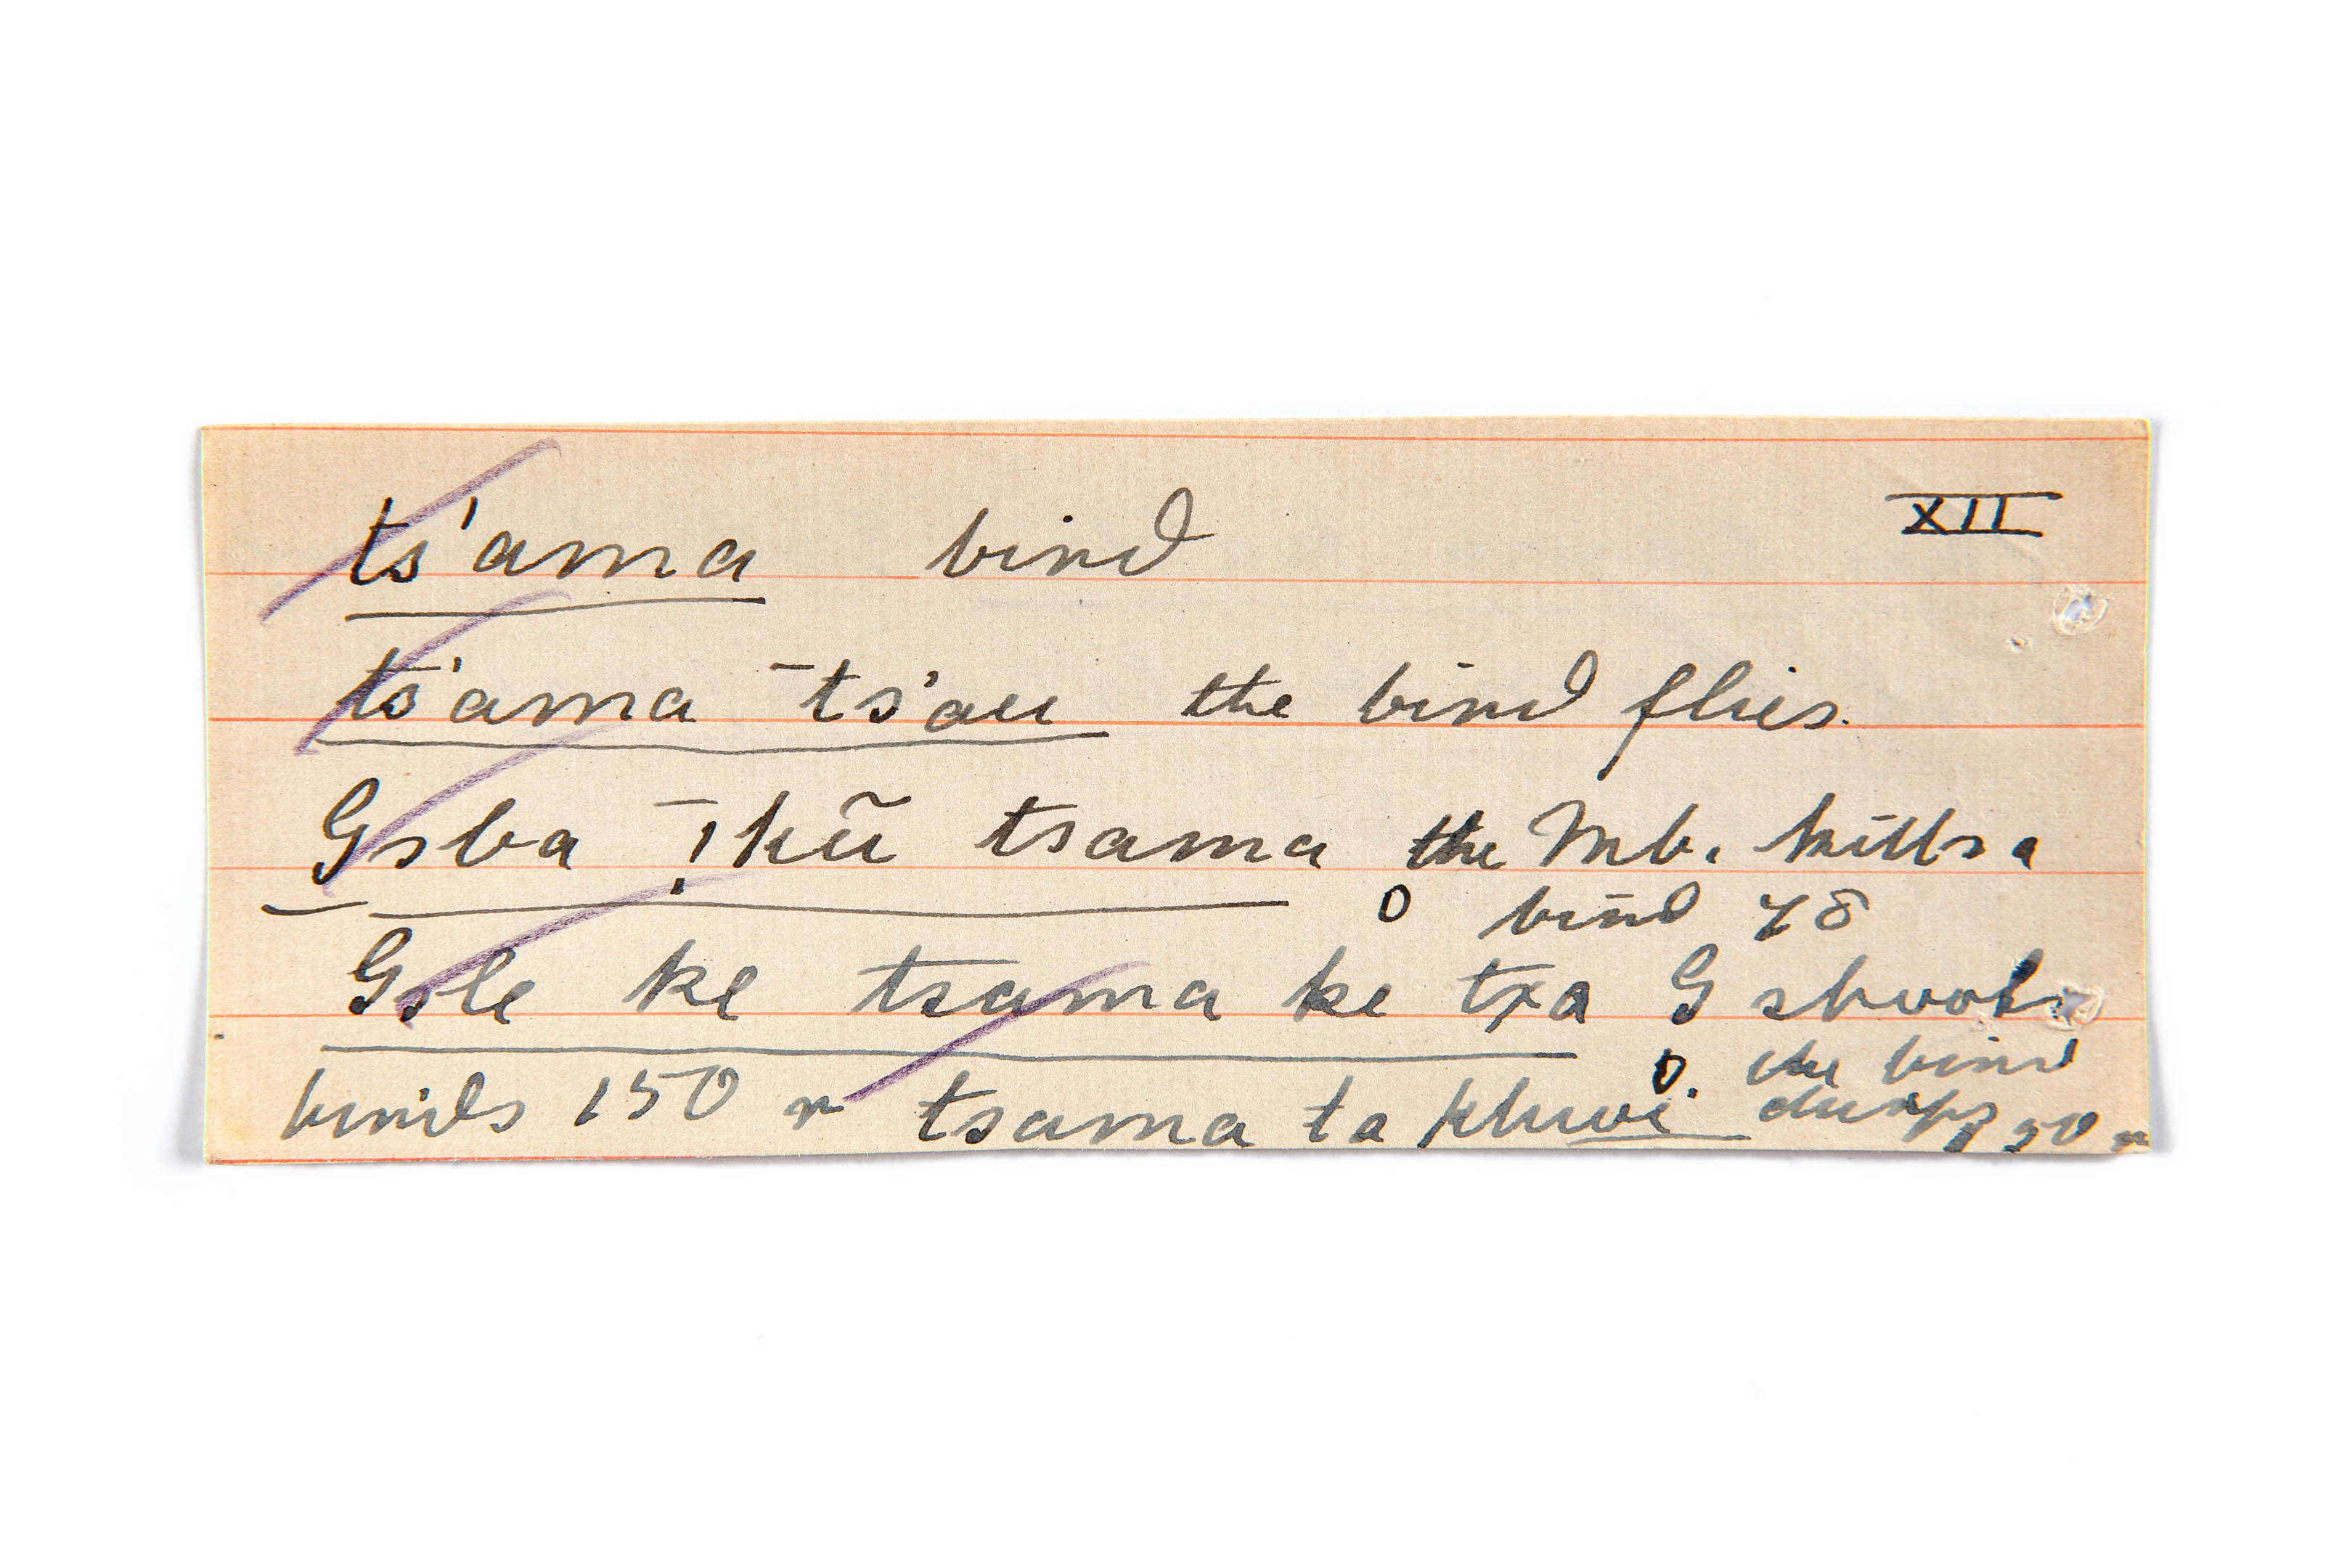 ts'ama bird XII
ts'ama ¯ts'au the bird flies.
Gsba ¯!kũ tsama the Mb. kills a
0 bird 78
Gsle ke tsama ke txa G shoots
0. the bird
birds 150 n tsama ta khwi drops 50 n